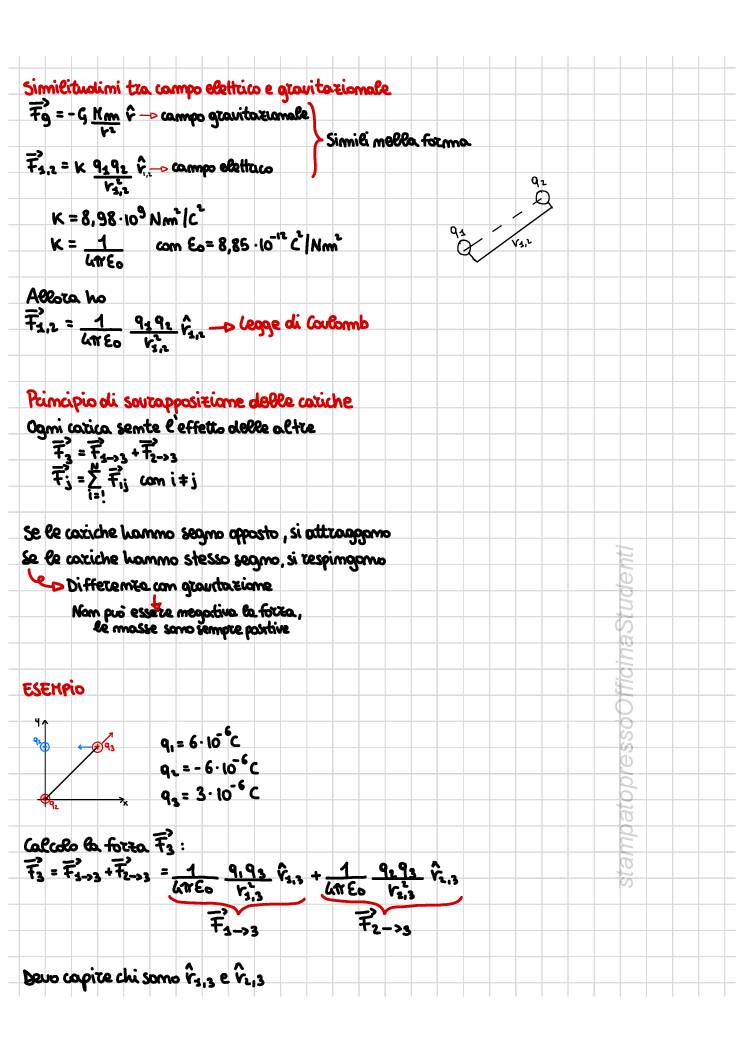 Similitudini tra campo elettrico e gravitazionale
F⃗g = -G Mm/r² r̂ → campo gravitazionale
Simili nella forma
F⃗1,2 = K q1q2/r²1,2 r̂1,2 → campo elettrico
K = 8,98·10⁹ Nm²/C²
K = 1/4πε0 con ε0 = 8,85·10⁻¹² C²/Nm²
q2
q1
r1,2
Allora ho
F⃗1,2 = 1/4πε0 q1q2/r²1,2 r̂1,2 → Legge di Coulomb
Principio di sovrapposizione delle cariche
Ogni carica sente l'effetto delle altre
F⃗3 = F⃗1→3 + F⃗2→3
F⃗j = N∑i=1 F⃗ij con i≠j
Se le cariche hanno segno opposto, si attraggono
Se le cariche hanno stesso segno, si respingono
Differenza con gravitazione
Non può essere negativa la forza,
le masse sono sempre positive
ESEMPIO
y
q1
q3
q2
x
q1 = 6·10⁻⁶ C
q2 = -6·10⁻⁶ C
q3 = 3·10⁻⁶ C
Calcolo la forza F⃗3:
F⃗3 = F⃗1→3 + F⃗2→3 = 1/4πε0 q1q3/r²1,3 r̂1,3 + 1/4πε0 q2q3/r²2,3 r̂2,3
F⃗1→3 F⃗2→3
Devo capire chi sono r̂1,3 e r̂2,3
stampatopressoOfficinaStudenti